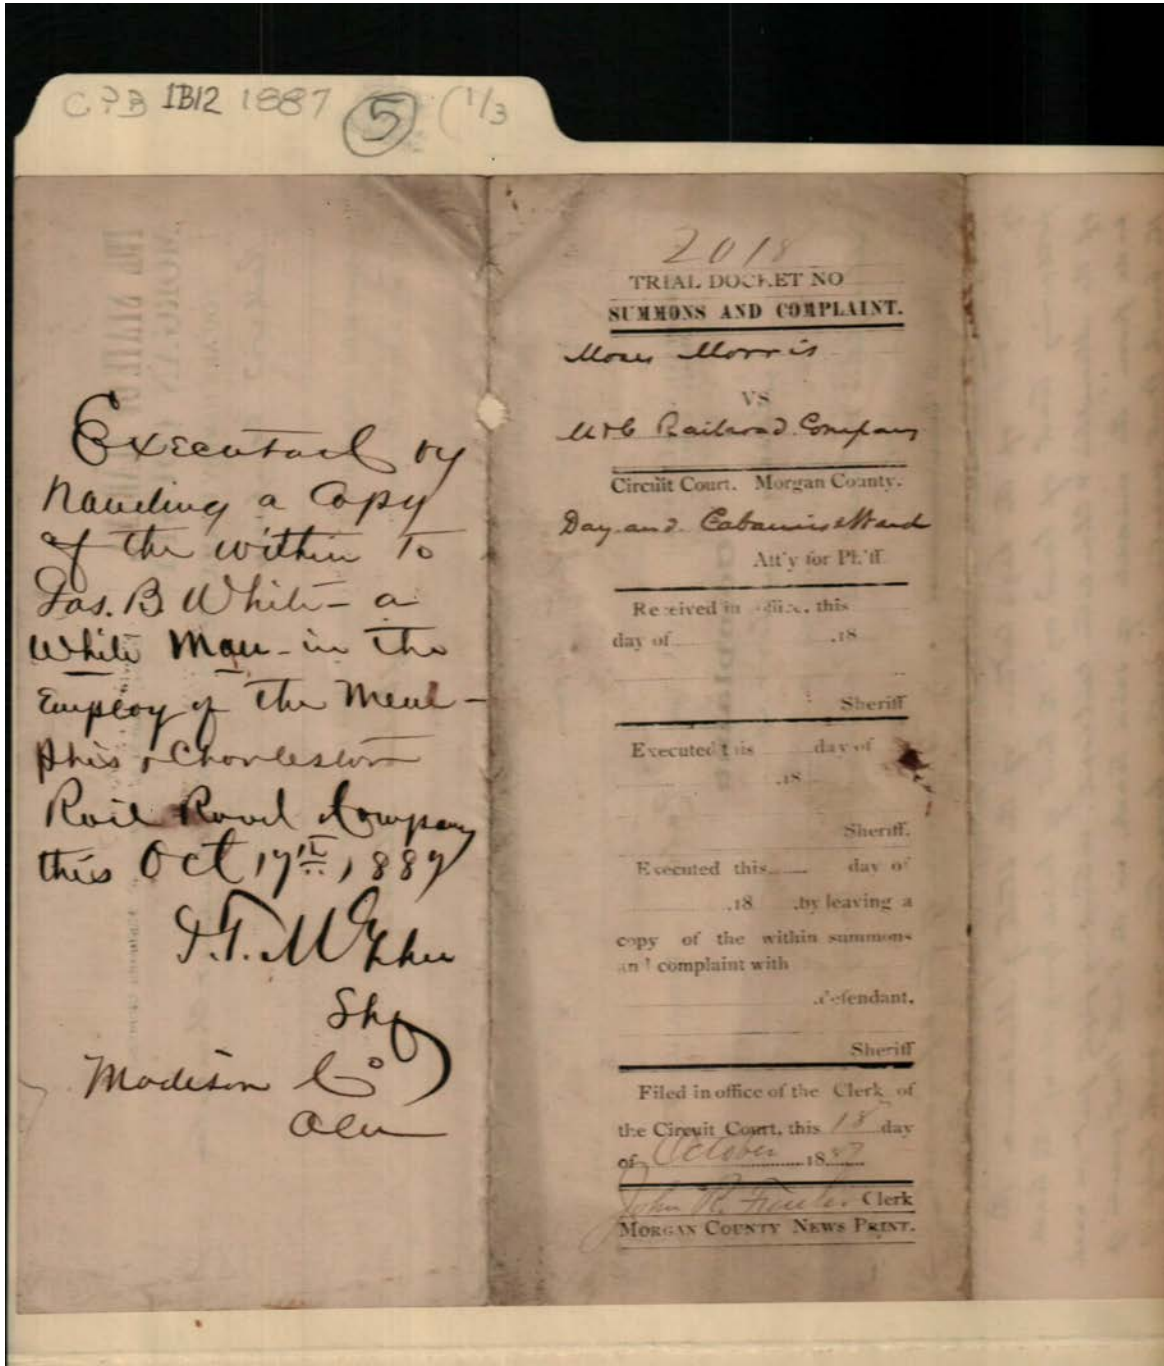 CPB 1B12 1887 5 (1/3
Executed by
handing a Copy
of the within To
Jas. B White - a
White Man - in the
Employ of the Mem-
phis & Charleston
Rail Road Company
this Oct 17th, 1887
Shff
Madison Co
Ala
2018
TRIAL DOCKET NO
SUMMONS AND COMPLAINT.
Moses Morris
VS
M & C Railroad Company
Circuit Court. Morgan County.
Day and Cabaniss & Ward
Att'y for Pl'ff
Received in office, this
day of .18
Sheriff
Executed this day of
.18
Sheriff.
Executed this day of
.18 .by leaving a
copy of the within summons
and complaint with
defendant.
Sheriff
Filed in office of the Clerk of
the Circuit Court, this 18 day
of October 1887
John R. Clerk
MORGAN COUNTY NEWS PRINT.